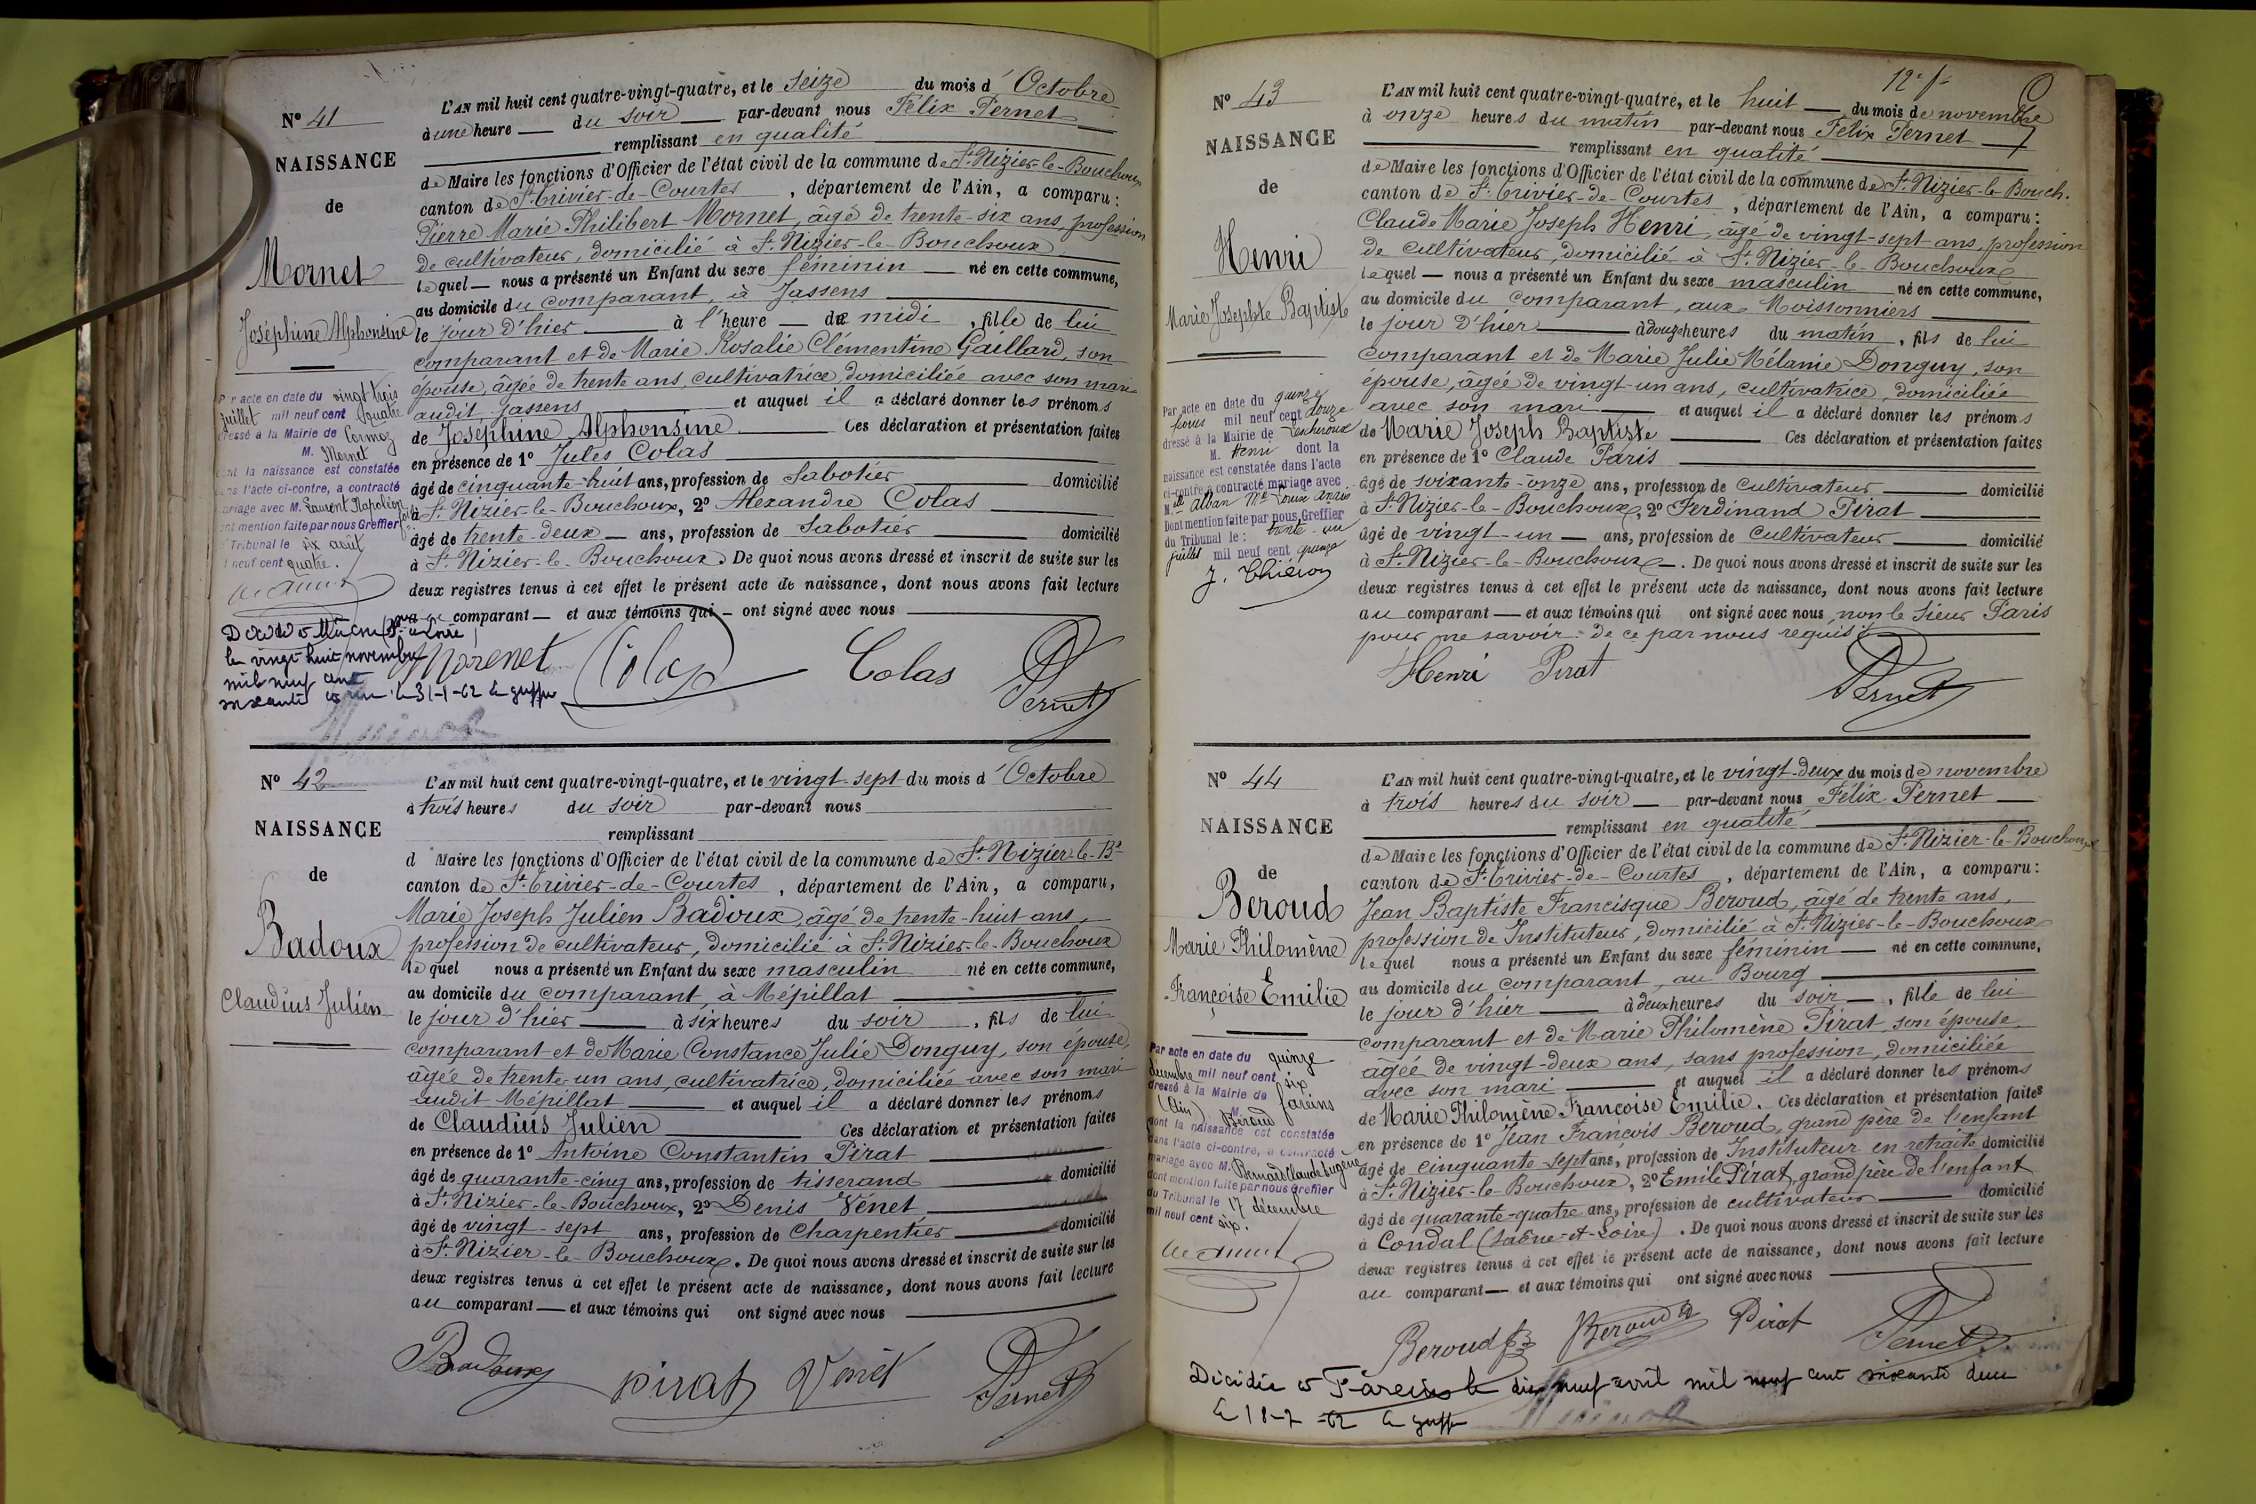 N° 41
NAISSANCE
de
Mornet
Joséphine Alphonsine
Par acte en date du vingt trois
juillet mil neuf cent quatre
dressé à la Mairie de Cormoz
M. Mornet
dont la naissance est constatée
dans l'acte ci-contre, a contracté
mariage avec M. Laurent Napoléon
dont mention faite par nous Greffier
du Tribunal le six août
mil neuf cent quatre.
L'AN mil huit cent quatre-vingt-quatre, et le seize du mois d'Octobre
à une heure du soir par-devant nous Félix Pernet
remplissant en qualité
de Maire les fonctions d'Officier de l'état civil de la commune de St-Nizier-le-Bouchoux
canton de St-Trivier-de-Courtes, département de l'Ain, a comparu:
Pierre Marie Philibert Mornet, âgé de trente-six ans, profession
de cultivateur, domicilié à St-Nizier-le-Bouchoux
lequel nous a présenté un Enfant du sexe féminin né en cette commune,
au domicile du comparant, à Jassens
le jour d'hier à l'heure de midi, fille de lui
comparant et de Marie Rosalie Clémentine Gaillard, son
épouse, âgée de trente ans, cultivatrice, domiciliée avec son mari
audit Jassens et auquel il a déclaré donner les prénoms
de Joséphine Alphonsine Ces déclaration et présentation faites
en présence de 1° Jules Colas
âgé de cinquante-huit ans, profession de Sabotier domicilié
à St-Nizier-le-Bouchoux, 2° Alexandre Colas
âgé de trente-deux ans, profession de Sabotier domicilié
à St-Nizier-le-Bouchoux. De quoi nous avons dressé et inscrit de suite sur les
deux registres tenus à cet effet le présent acte de naissance, dont nous avons fait lecture
comparant et aux témoins qui ont signé avec nous
le vingt huit novembre
mil neuf cent
soixante le 31-1-62 le greffier
Mornet Colas Colas Pernet
N° 42
NAISSANCE
de
Badoux
Claudius Julien
L'AN mil huit cent quatre-vingt-quatre, et le vingt-sept du mois d'Octobre
à trois heures du soir par-devant nous
remplissant
d Maire les fonctions d'Officier de l'état civil de la commune de St-Nizier-le-Bx
canton de St-Trivier-de-Courtes, département de l'Ain, a comparu,
Marie Joseph Julien Badoux, âgé de trente-huit ans,
profession de cultivateur, domicilié à St-Nizier-le-Bouchoux
lequel nous a présenté un Enfant du sexe masculin né en cette commune,
au domicile du comparant, à Mépillat
le jour d'hier à six heures du soir, fils de lui
comparant et de Marie Constance Julie Donguy, son épouse,
âgée de trente un ans, cultivatrice, domiciliée avec son mari
audit Mépillat et auquel il a déclaré donner les prénoms
de Claudius Julien Ces déclaration et présentation faites
en présence de 1° Antoine Constantin Pirat
âgé de quarante-cinq ans, profession de tisserand domicilié
à St-Nizier-le-Bouchoux, 2° Denis Vénet
âgé de vingt-sept ans, profession de Charpentier domicilié
à St-Nizier-le-Bouchoux. De quoi nous avons dressé et inscrit de suite sur les
deux registres tenus à cet effet le présent acte de naissance, dont nous avons fait lecture
au comparant et aux témoins qui ont signé avec nous
Badoux Pirat Venet Pernet
12e f.
N° 43
NAISSANCE
de
Henri
Marie Joseph Baptiste
Par acte en date du quinze
mil neuf cent douze
dressé à la Mairie de Lescheroux
M. Henri dont la
naissance est constatée dans l'acte
ci-contre a contracté mariage avec
Dont mention faite par nous Greffier
du Tribunal le: trente-un
juillet mil neuf cent quinze
L'AN mil huit cent quatre-vingt-quatre, et le huit du mois de novembre
à onze heures du matin par-devant nous Félix Pernet
remplissant en qualité
de Maire les fonctions d'Officier de l'état civil de la commune de St-Nizier-le-Bouch.
canton de St-Trivier-de-Courtes, département de l'Ain, a comparu:
Claude Marie Joseph Henri, âgé de vingt-sept ans, profession
de cultivateur, domicilié à St-Nizier-le-Bouchoux
lequel nous a présenté un Enfant du sexe masculin né en cette commune,
au domicile du comparant, aux Moissonniers
le jour d'hier à douze heures du matin, fils de lui
comparant et de Marie Julie Mélanie Donguy, son
épouse, âgée de vingt-un ans, cultivatrice, domiciliée
avec son mari et auquel il a déclaré donner les prénoms
de Marie Joseph Baptiste Ces déclaration et présentation faites
en présence de 1° Claude Paris
âgé de soixante-onze ans, profession de cultivateur domicilié
à St-Nizier-le-Bouchoux, 2° Ferdinand Pirat
âgé de vingt-un ans, profession de cultivateur domicilié
à St-Nizier-le-Bouchoux. De quoi nous avons dressé et inscrit de suite sur les
deux registres tenus à cet effet le présent acte de naissance, dont nous avons fait lecture
au comparant et aux témoins qui ont signé avec nous, non le Sieur Paris
pour ne savoir de ce par nous requis.
Henri Pirat Pernet
N° 44
NAISSANCE
de
Beroud
Marie Philomène
Françoise Emilie
Par acte en date du quinze
décembre mil neuf cent six
dressé à la Mairie de Fareins
(Ain) M. Beroud
dont la naissance est constatée
dans l'acte ci-contre, a contracté
mariage avec M. Bernard Claude Eugène
dont mention faite par nous Greffier
du Tribunal le 17 décembre
mil neuf cent six.
L'AN mil huit cent quatre-vingt-quatre, et le vingt-deux du mois de novembre
à trois heures du soir par-devant nous Félix Pernet
remplissant en qualité
de Maire les fonctions d'Officier de l'état civil de la commune de St-Nizier-le-Bouchoux
canton de St-Trivier-de-Courtes, département de l'Ain, a comparu:
Jean Baptiste Francisque Beroud, âgé de trente ans,
profession de Instituteur, domicilié à St-Nizier-le-Bouchoux
lequel nous a présenté un Enfant du sexe féminin né en cette commune,
au domicile du comparant, au Bourg
le jour d'hier à deux heures du soir, fille de lui
comparant et de Marie Philomène Pirat, son épouse,
âgée de vingt-deux ans, sans profession, domiciliée
avec son mari et auquel il a déclaré donner les prénoms
de Marie Philomène Françoise Emilie. Ces déclaration et présentation faites
en présence de 1° Jean François Beroud, grand père de l'enfant
âgé de cinquante-sept ans, profession de Instituteur en retraite domicilié
à St-Nizier-le-Bouchoux, 2° Emile Pirat, grand père de l'enfant
âgé de quarante-quatre ans, profession de cultivateur domicilié
à Condal (Saône-et-Loire). De quoi nous avons dressé et inscrit de suite sur les
deux registres tenus à cet effet le présent acte de naissance, dont nous avons fait lecture
au comparant et aux témoins qui ont signé avec nous
Beroud Beroud Pirat Pernet
Décédée à Fareins le dix neuf avril mil neuf cent soixante deux
le 18-7-62 le greffier